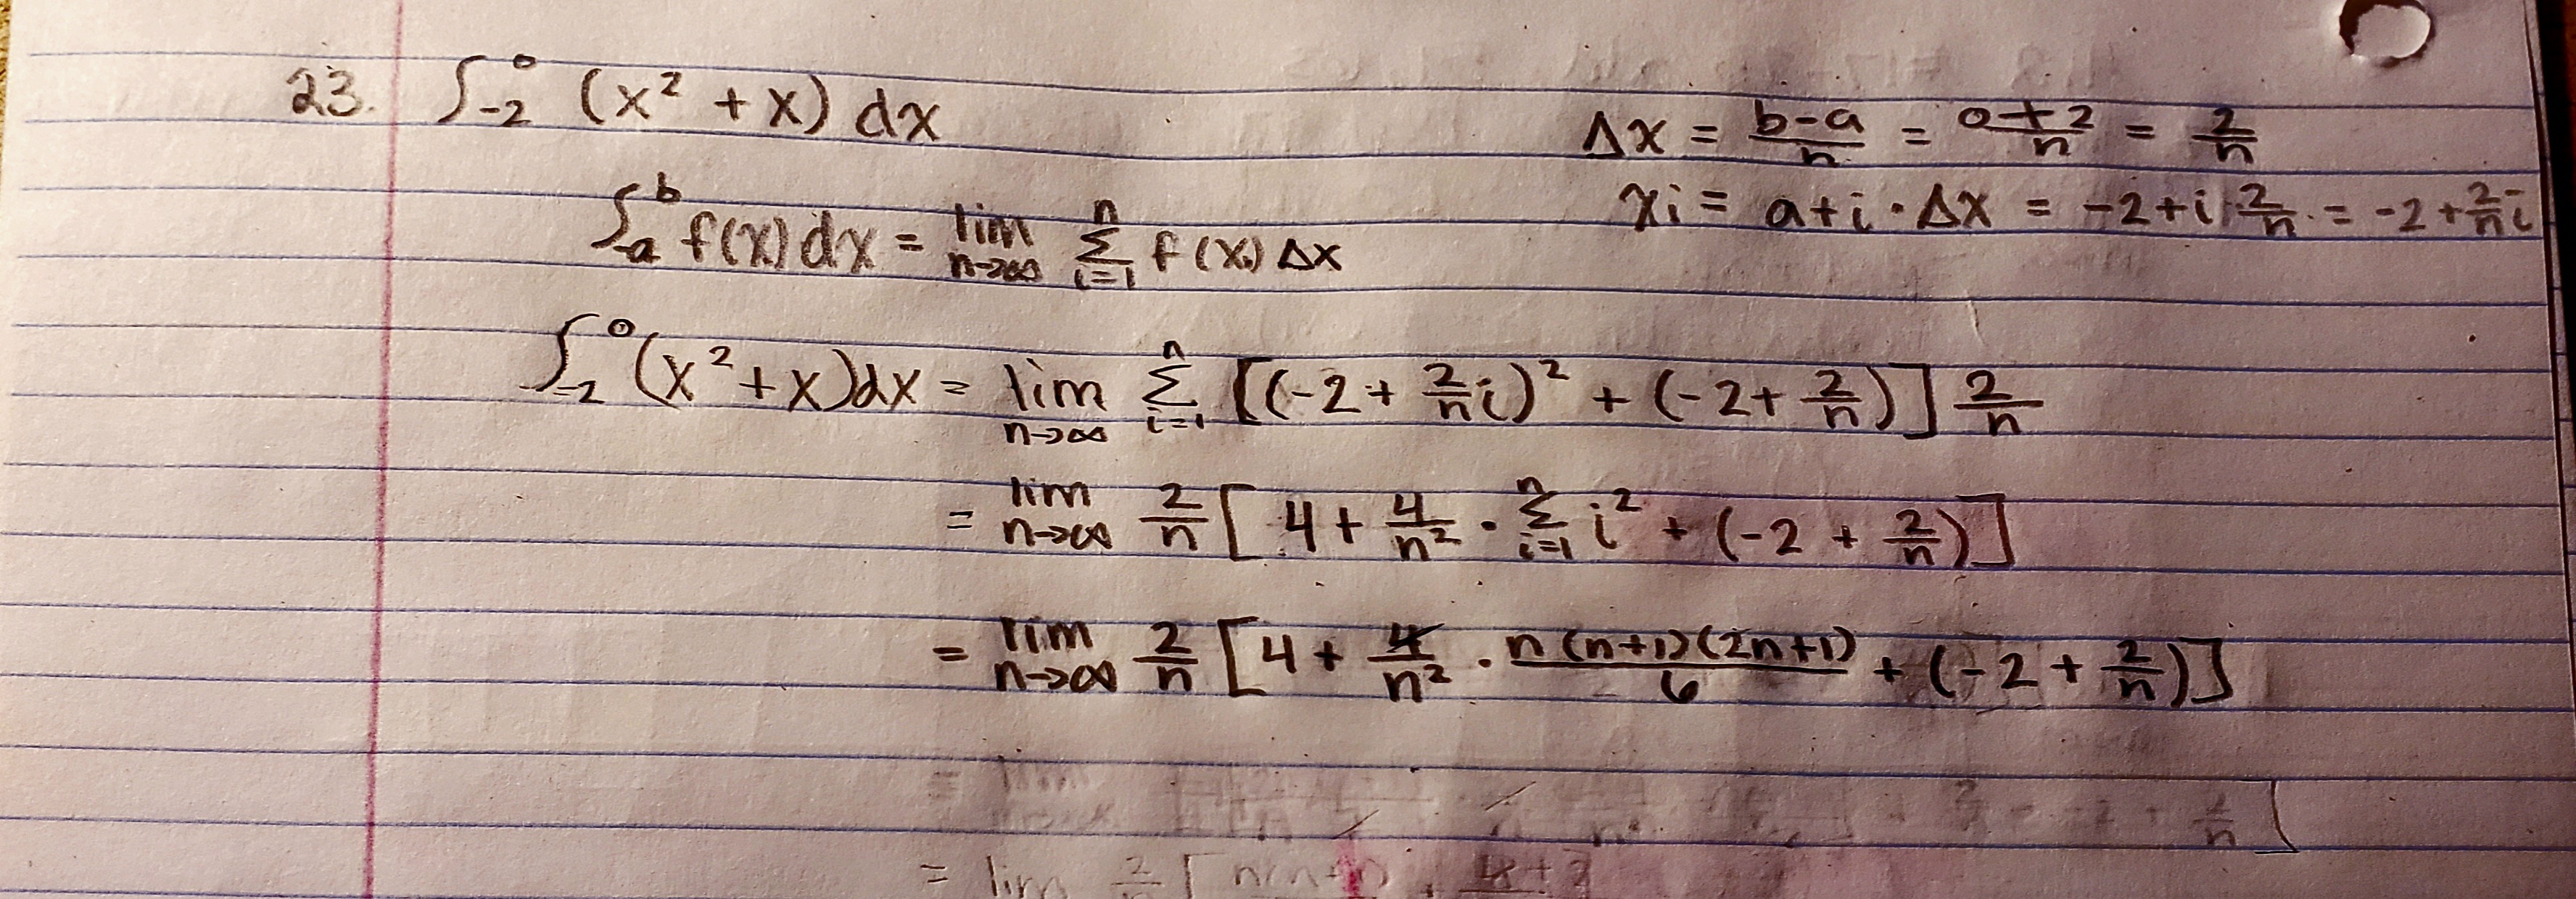 23. ∫₋₂⁰ (x² + x) dx
Δx = (b-a)/n = (0+2)/n = 2/n
xi = a+i·Δx = -2+i·2/n = -2+2/n i
∫₋ₐᵇ f(x)dx = lim n→∞ Σ i=1 n f(xi) Δx
∫₋₂⁰ (x²+x)dx = lim n→∞ Σ i=1 n [(-2+ 2/n i)² + (-2+ 2/n)] 2/n
= lim n→∞ 2/n [4+ 4/n² · Σ i=1 n i² + (-2 + 2/n)]
= lim n→∞ 2/n [4+ 4/n² · n(n+1)(2n+1)/6 + (-2+ 2/n)]
= lim
= lim 2/n [